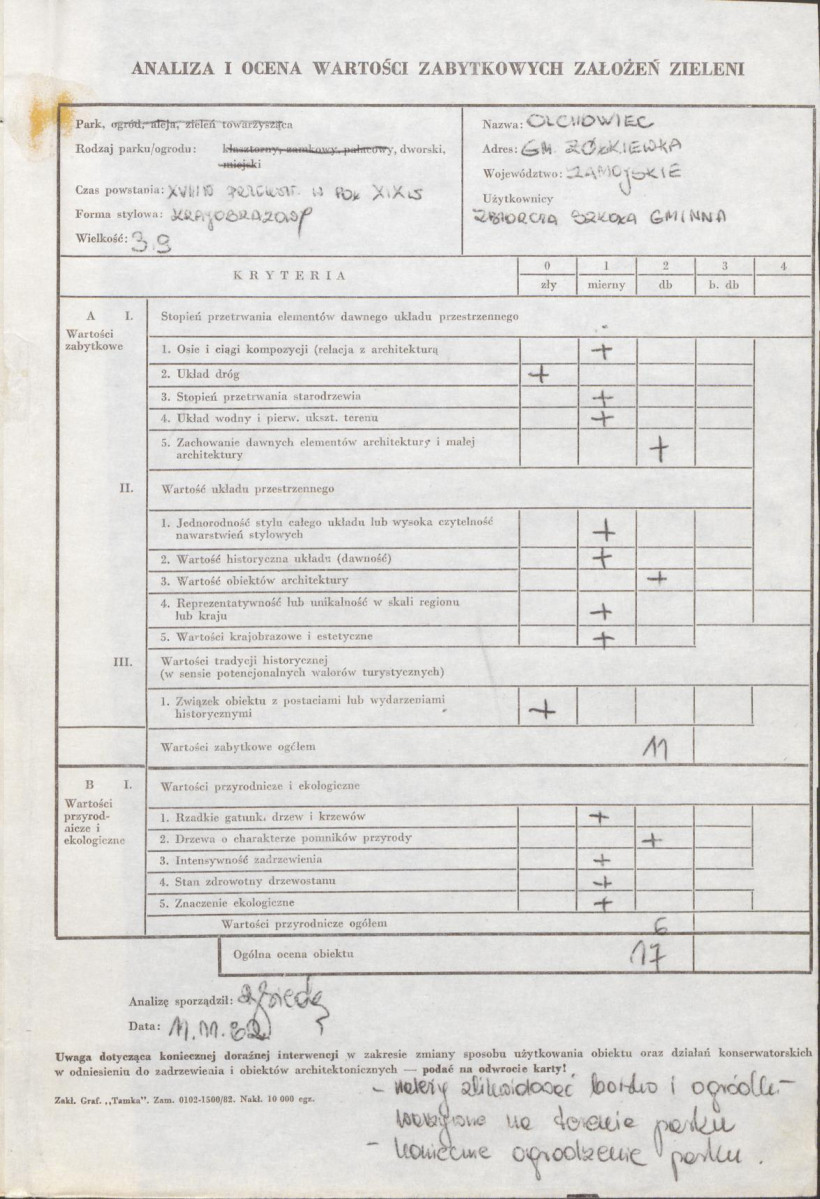 ANALIZA I OCENA WARTOŚCI ZABYTKOWYCH ZAŁOŻEŃ ZIELENI
Park, ogród, aleja, zieleń towarzysząca
Rodzaj parku/ogrodu: klasztorny, zamkowy, pałacowy, dworski,
miejski
Czas powstania: XVIII/XIX w POŁ XIX w
Forma stylowa: KRAJOBRAZOWY
Wielkość: 3,9
Nazwa: OLCHOWIEC
Adres: GM. ŻÓŁKIEWKA
Województwo: ZAMOJSKIE
Użytkownicy
ZBIORCZA SZKOŁA GMINNA
KRYTERIA
0 1 2 3 4
zły mierny db b. db
A I. Stopień przetrwania elementów dawnego układu przestrzennego
Wartości
zabytkowe
1. Osie i ciągi kompozycji (relacja z architekturą +
2. Układ dróg +
3. Stopień przetrwania starodrzewia +
4. Układ wodny i pierw. ukszt. terenu +
5. Zachowanie dawnych elementów architektury i małej
architektury +
II. Wartość układu przestrzennego
1. Jednorodność stylu całego układu lub wysoka czytelność
nawarstwień stylowych +
2. Wartość historyczna układu (dawność) +
3. Wartość obiektów architektury +
4. Reprezentatywność lub unikalność w skali regionu
lub kraju +
5. Wartości krajobrazowe i estetyczne +
III. Wartości tradycji historycznej
(w sensie potencjonalnych walorów turystycznych)
1. Związek obiektu z postaciami lub wydarzeniami
historycznymi +
Wartości zabytkowe ogółem 11
B I. Wartości przyrodnicze i ekologiczne
Wartości
przyrod-
nicze i
ekologiczne
1. Rzadkie gatunk. drzew i krzewów +
2. Drzewa o charakterze pomników przyrody +
3. Intensywność zadrzewienia +
4. Stan zdrowotny drzewostanu +
5. Znaczenie ekologiczne +
Wartości przyrodnicze ogółem 6
Ogólna ocena obiektu 17
Analizę sporządził:
Data: 11.11.82
Uwaga dotycząca koniecznej doraźnej interwencji w zakresie zmiany sposobu użytkowania obiektu oraz działań konserwatorskich
w odniesieniu do zadrzewienia i obiektów architektonicznych — podać na odwrocie karty!
Zakł. Graf. „Tamka". Zam. 0102-1500/82. Nakł. 10 000 egz.
- należy zlikwidować boisko i ogródki
na terenie parku
- konieczne ogrodzenie parku.